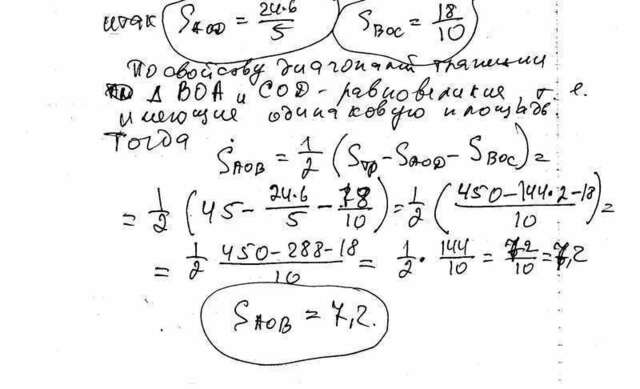 итак S_AOD = 24·6/5 S_BOC = 18/10
По свойству диагоналей трапеции
Δ BOA и COD - равновеликие т. е.
имеющие одинаковую площадь.
Тогда
S_AOB = 1/2 (S_тр - S_AOD - S_BOC) =
= 1/2 (45 - 24·6/5 - 18/10) = 1/2 (450-144·2-18/10) =
= 1/2 450-288-18/10 = 1/2 · 144/10 = 72/10 = 7,2
S_AOB = 7,2.